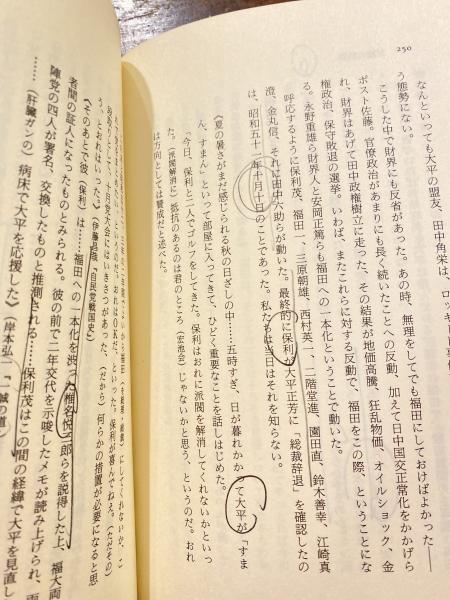 250
なんといっても大平の盟友、田中角栄は、ロッキ
う態勢にない。
こうした中で財界にも反省があった。あの時、無理をしてでも福田にしておけばよかった――
ポスト佐藤。官僚政治があまりにも長く続いたことへの反動、加えて日中国交正常化をかかげら
れ、財界はあげて田中政権樹立に走った、その結果が地価高騰、狂乱物価、オイルショック、金
権政治、保守敗退の選挙。いわば、またこれらに対する反動で、福田をこの際、ということにな
る。永野重雄ら財界人と安岡正篤らも福田への一本化ということで動いた。
呼応するように保利茂、福田一、三原朝雄、西村英一、二階堂進、園田直、鈴木善幸、江崎真
澄、金丸信、それに田中六助らが動いた。最終的に保利が大平正芳に「総裁辞退」を確認したの
は、昭和五十一年十月十日のことであった。私たちは当日はそれを知らない。
《夏の暑さがまだ感じられる秋の日ざしの中……五時すぎ、日が暮れかかって大平が「すま
ん、すまん」といって部屋に入ってきて、ひどく重要なことを話しはじめた。
「今日、保利と二人でゴルフをしてきた。保利はおれに派閥を解消してくれないかといっ
た。(派閥解消に)抵抗のあるのは君のところ(宏池会)じゃないかと思う、というのだ。おれ
は方向としては賛成だと述べた。
にしてくれないか、こ
だ。おれはOKだ、といった。保利が喜んでねえ。(ただその)
ああ
十月党大会にはいきさつがあった、(だから)何らかの措置が必要になると思
う、とおれはいった」》伊藤昌哉『自民党戦国史』
《そのあとで彼、(保利)は……福田への一本化を渋った椎名悦三郎らを説得した上、福大両
者間の証人になったものとみられる。彼の前で二年交代を示唆したメモが読み上げられ、両
陣営の四人が署名、交換したものと推測される……保利茂はこの間の経緯で大平を見直し
……(肝臓ガンの)病床で大平を応援した》(岸本弘一『一誠の道』)